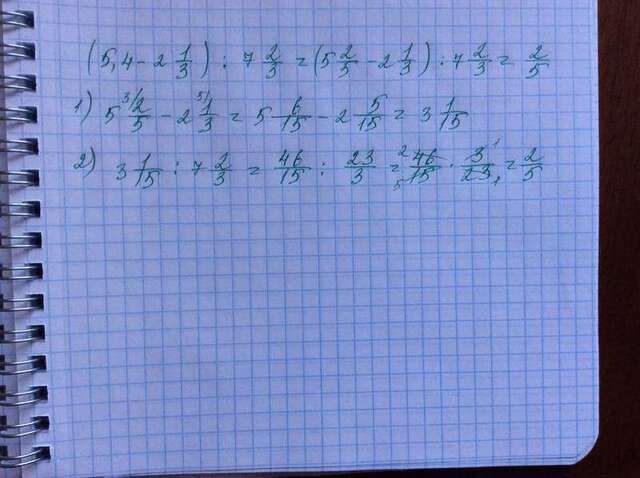 (5,4 - 2 1/3) : 7 2/3 = (5 2/5 - 2 1/3) : 7 2/3 = 2/5
1) 5 ³⁄ 2/5 - 2 ⁵⁄ 1/3 = 5 6/15 - 2 5/15 = 3 1/15
2) 3 1/15 : 7 2/3 = 46/15 : 23/3 = ² 46/15 ₅ · 3/23 ¹ ₁ = 2/5